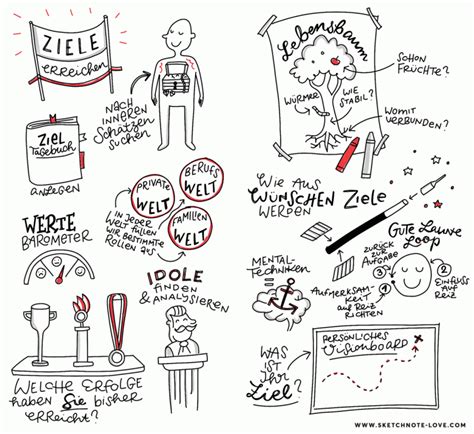 ZIELE
erreichen
NACH
INNEREN
SCHÄTZEN
SUCHEN
ZIEL
TAGEBUCH
anlegen
PRIVATE
WELT
BERUFS
WELT
FAMILIEN
WELT
IN JEDER
WELT FÜLLEN
WIR BESTIMMTE
ROLLEN AUS
WERTE
BAROMETER
IDOLE
FINDEN
& ANALYSIEREN
WELCHE ERFOLGE
haben Sie bisher
erreicht?
Lebensbaum
SCHON
FRÜCHTE?
WÜRMER
WIE
STABIL?
WOMIT
VERBUNDEN?
WIE AUS
WÜNSCHEN ZIELE
WERDEN
GUTE LAUNE
LOOP
MENTAL-
TECHNIKEN
ZURÜCK
ZUR
AUFGABE
AUFMERKSAM-
KEIT
AUF REIZ
RICHTEN
EINFLUSS
AUF
REIZ
1
2
3
WAS
IST
Ihr
Ziel?
PERSÖNLICHES
Visionboard
WWW.SKETCHNOTE-LOVE.COM